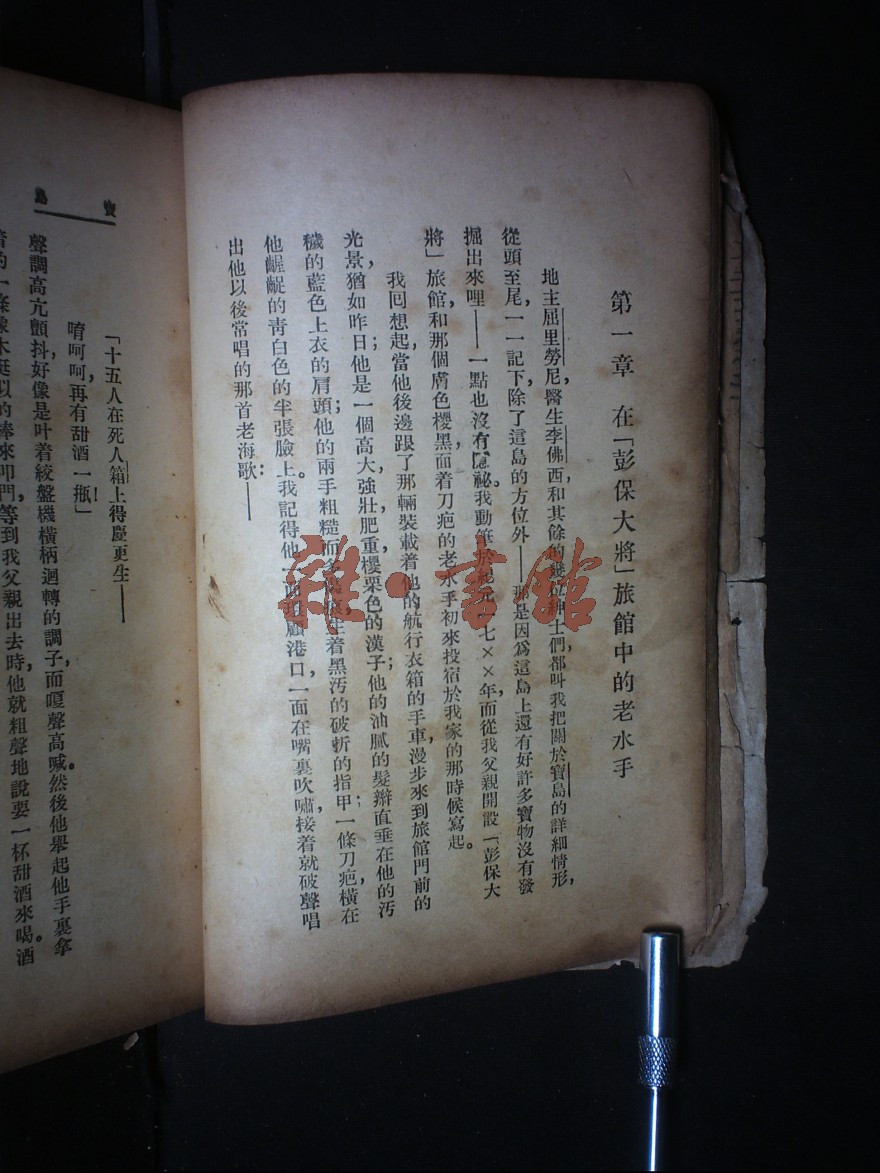 第一章　在「彭保大將」旅館中的老水手
地主屈里勞尼，醫生李佛西，和其餘的幾位紳士們，都叫我把關於寶島的詳細情形，
從頭至尾，一一記下，除了這島的方位外——那是因爲這島上還有好許多寶物沒有發
掘出來哩——一點也沒有隱祕。我動筆於紀元一七××年，而從我父親開設「彭保大
將」旅館，和那個膚色櫻黑，面着刀疤的老水手初來投宿於我家的那時候寫起。
我回想起，當他後邊跟了那輛裝載着他的航行衣箱的手車，漫步來到旅館門前的
光景，猶如昨日；他是一個高大，強壯，肥重，櫻栗色的漢子；他的油膩的髮辮直垂在他的污
穢的藍色上衣的肩頭；他的兩手粗糙而生着黑污的破斬的指甲；一條刀疤橫在
他齷齪的靑白色的半張臉上。我記得他一面顧港口，一面在嘴裏吹嘯，接着就破聲唱
出他以後常唱的那首老海歌：——
寶島
「十五人在死人箱上得慶更生——
唷呵呵，再有甜酒一瓶！」
聲調高亢顫抖，好像是叶着絞盤機橫柄迴轉的調子，而嗄聲高喊。然後他舉起他手裏拿
着的一條木挺似的棒來叩門，等到我父親出去時，他就粗聲地說要一杯甜酒來喝。酒
雜·書館